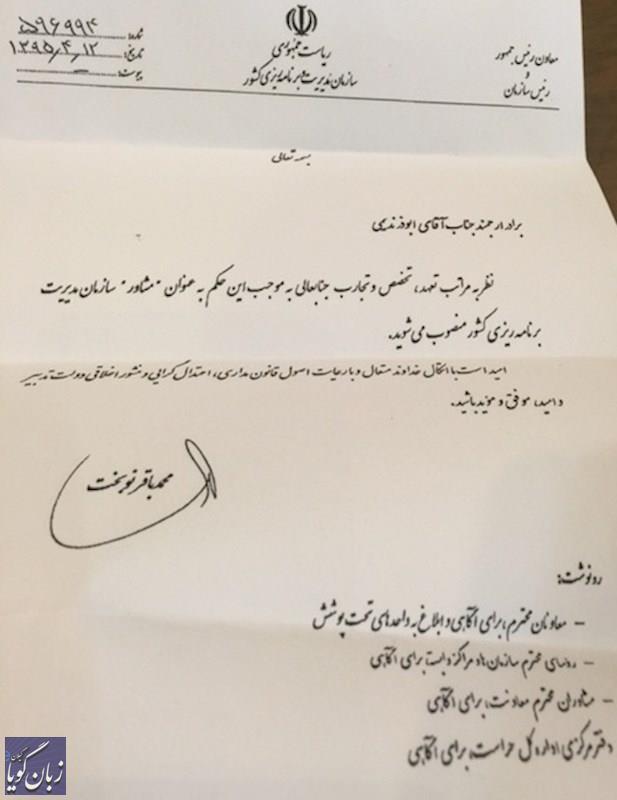 شماره: ۵۹۶۹۹۴
تاریخ: ۱۳۹۵٫۴٫۱۲
پیوست: –
ریاست جمهوری
سازمان مدیریت و برنامه ریزی کشور
معاون رئیس جمهور
و
رئیس سازمان
بسمه تعالی
برادر ارجمند جناب آقای ابوذر ندیمی
نظر به مراتب تعهد، تخصص و تجارب جنابعالی به موجب این حکم به عنوان "مشاور" سازمان مدیریت
برنامه ریزی کشور منصوب می شوید.
امید است با اتکال خداوند متعال و با رعایت اصول قانون مداری، اعتدال گرایی و منشور اخلاقی دولت تدبیر
و امید، موفق و مؤید باشید.
محمدباقر نوبخت
رونوشت:
- معاونان محترم، برای آگاهی و ابلاغ به واحدهای تحت پوشش
- روسای محترم سازمان ها و مراکز وابسته برای آگاهی
- مشاوران محترم معاونت، برای آگاهی
دفتر مرکزی اداره کل حراست، برای آگاهی
زبان گویا